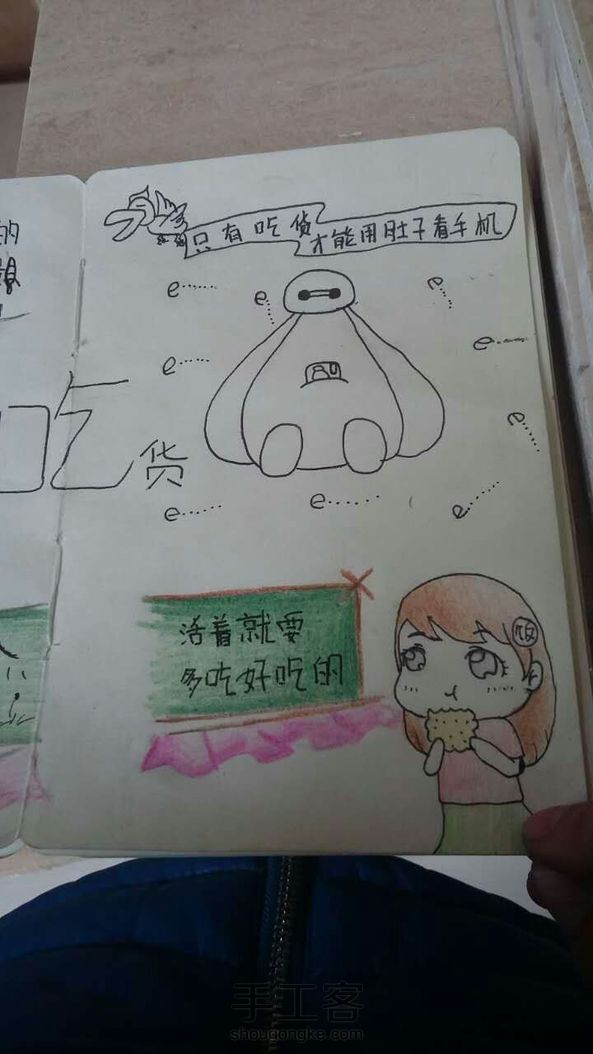 只有吃货
才能用肚子看手机
e……
e……
e……
e……
e……
e……
e……
e……
e……
吃
货
活着就要
多吃好吃的
饭
的
手工客
shougongke.com